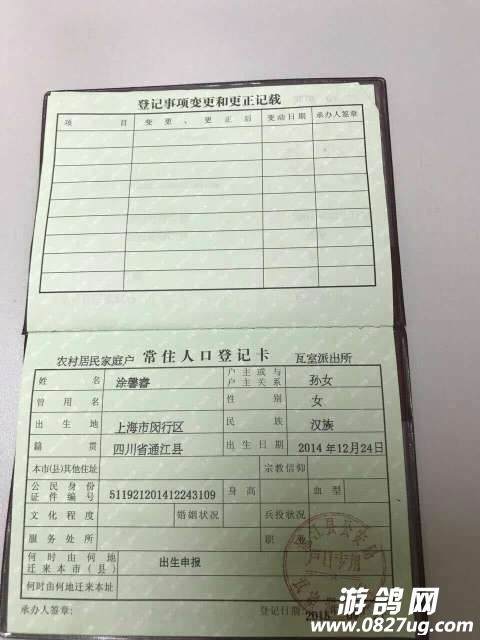 登记事项变更和更正记载
项 目 变更、更正后 变动日期 承办人签章
农村居民家庭户 常住人口登记卡 瓦室派出所
姓 名 涂馨睿 户主或与户主关系 孙女
曾用名 性 别 女
出生地 上海市闵行区 民 族 汉族
籍 贯 四川省通江县 出生日期 2014年12月24日
本市(县)其他住址 宗教信仰
公民身份证件编号 511921201412243109 身高 血型
文化程度 婚姻状况 兵役状况
服务处所 职业
何时由何地迁来本市(县) 出生申报
何时由何地迁来本址
承办人签章: 登记日期:
游鸽网
www.0827ug.com